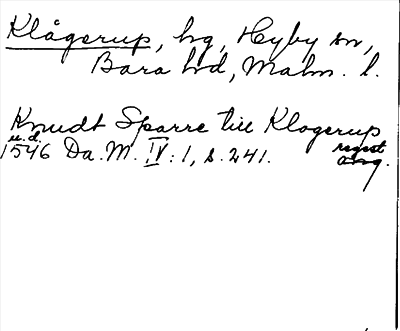 Klågerup, hg, Hyby sn,
Bara hd, Malm. l.
Knudt Sparre till Klogerup
u.d. regest
1546 Da. M. IV: 1, s. 241. orig.